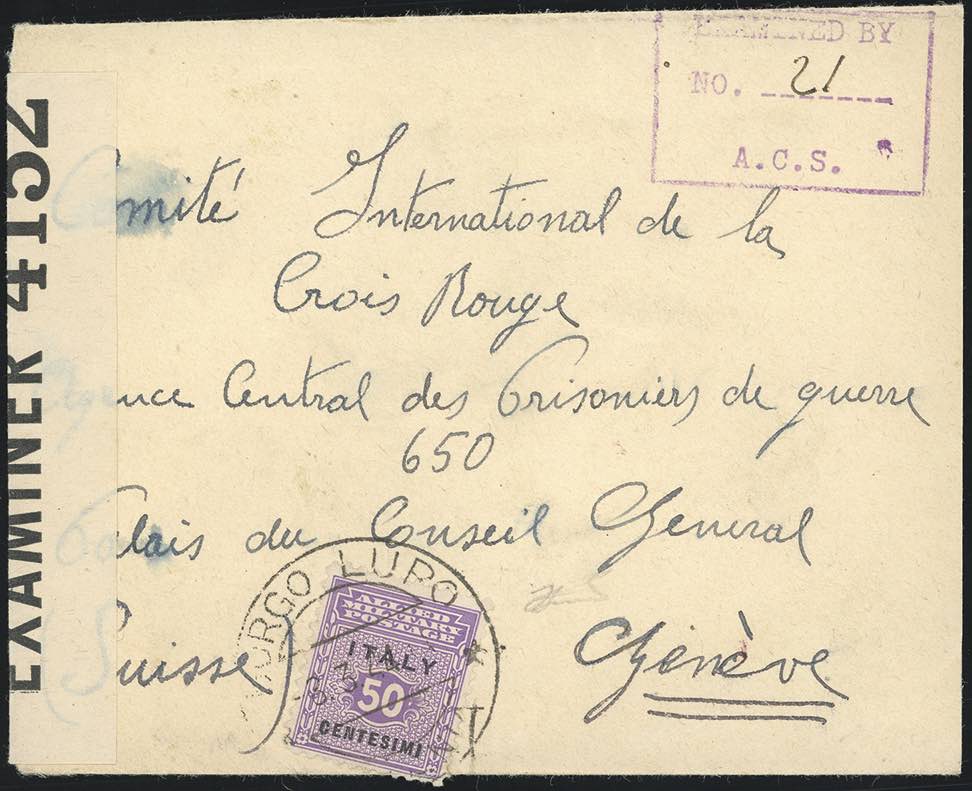 EXAMINED BY
NO. 21
A.C.S.
EXAMINER 4152
Comité International de la
Crois Rouge
Agence Central des Prisoniers de guerre
650
Palais du Conseil General
(Suisse) Genève
BORGO LUPO
ALLIED
MILITARY
POSTAGE
ITALY
50
CENTESIMI